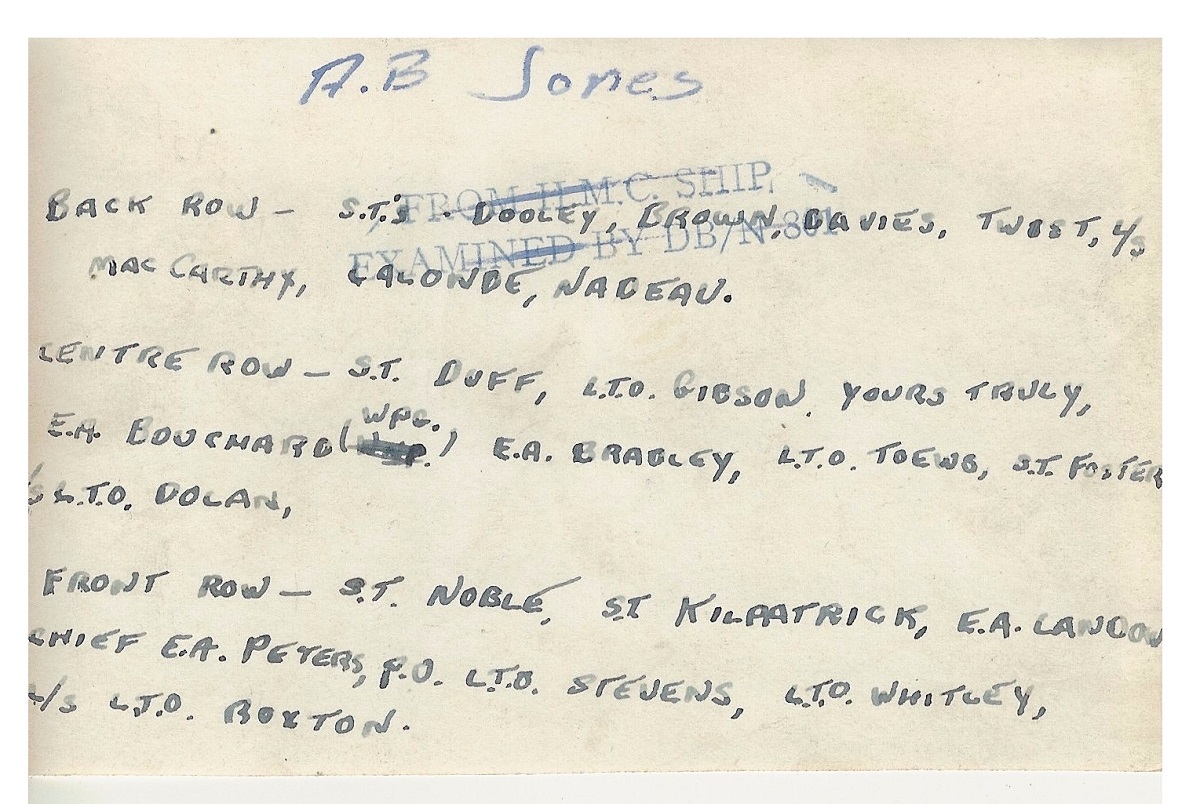 A.B Jones
FROM H.M.C. SHIP
EXAMINED BY DB/N-801
BACK ROW - S.T.'s - DOOLEY, BROWN, DAVIES, TWIST, L/S
MAC CARTHY, LALONDE, NADEAU.
CENTRE ROW - S.T. DUFF, L.T.O. GIBSON, YOURS TRULY,
WPG.
E.A. BOUCHARD ( ) E.A. BRADLEY, L.T.O. TOEWS, S.T. FOSTER
/S L.T.O. DOLAN,
FRONT ROW - S.T. NOBLE, ST KILPATRICK, E.A. LANDON
CHIEF E.A. PETERS, P.O. L.T.O. STEVENS, L.T.O. WHITLEY,
L/S L.T.O. ROXTON.